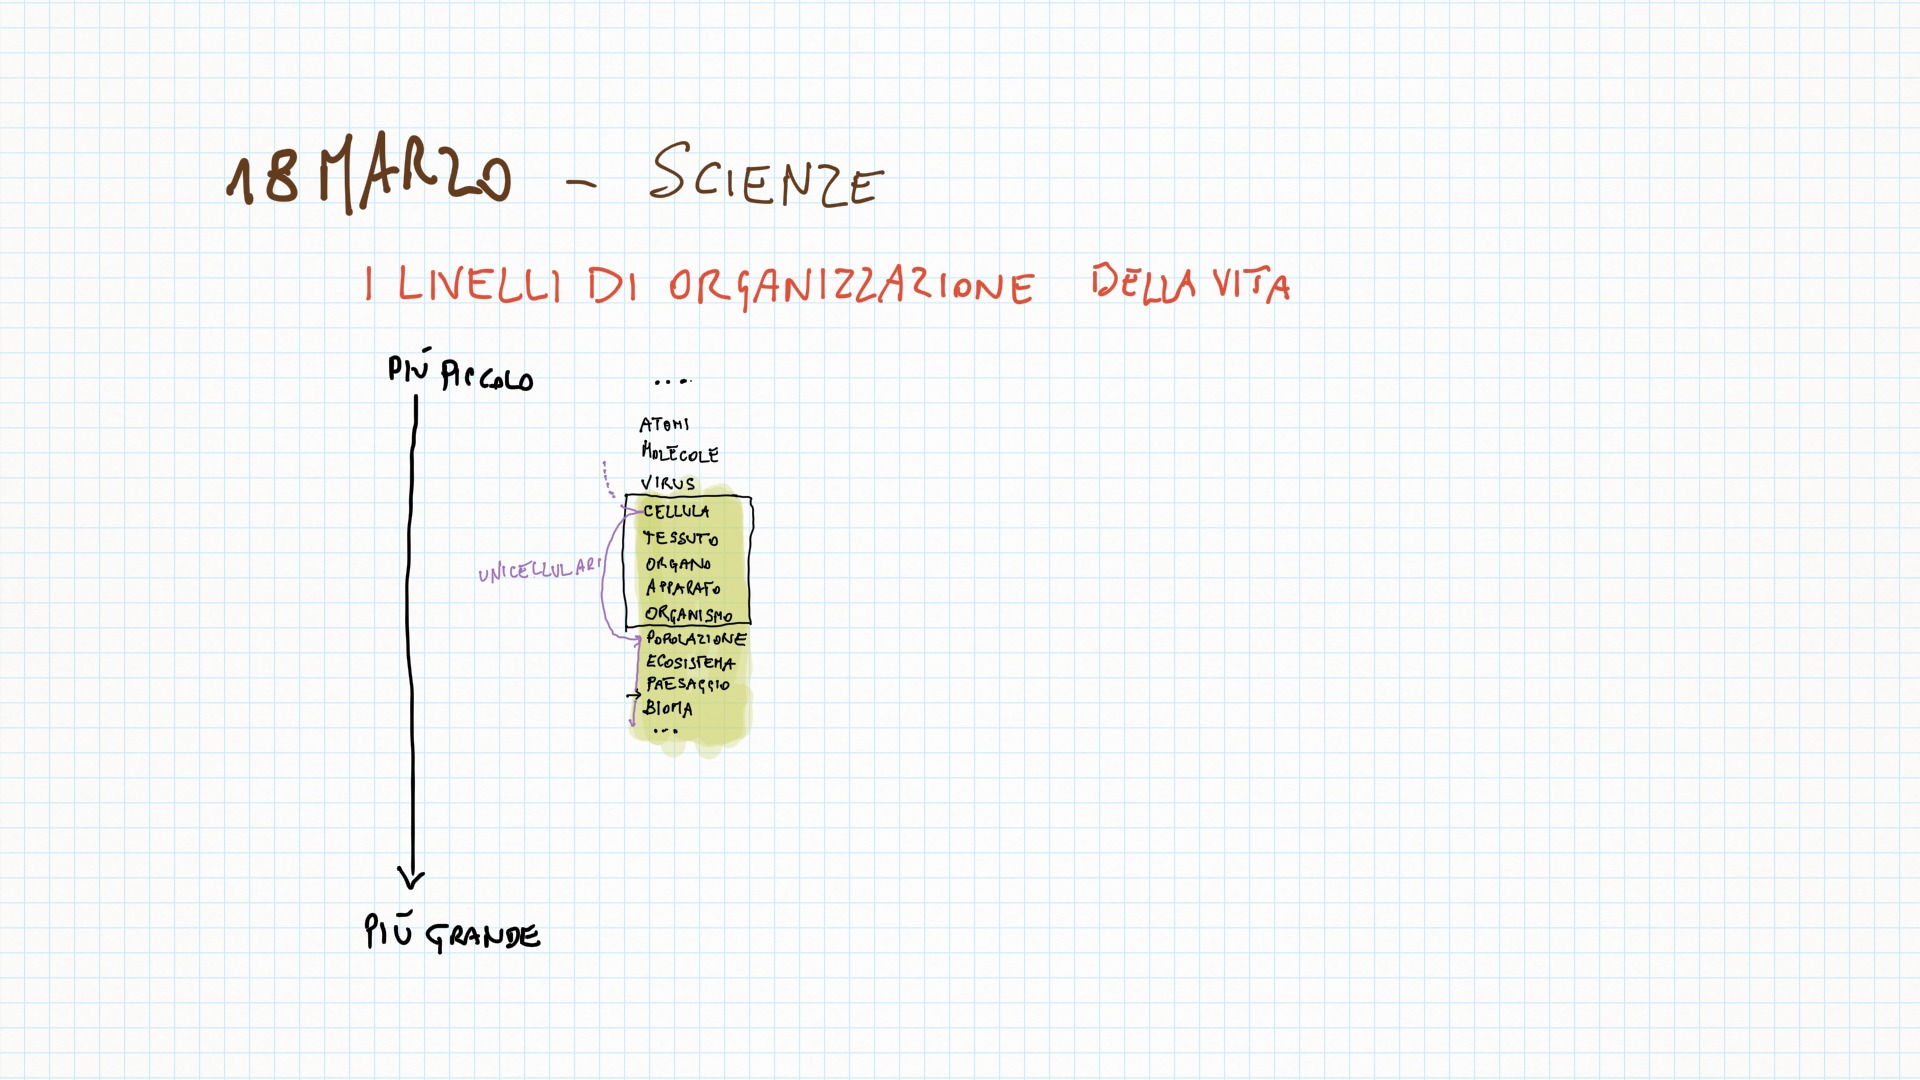 18 MARZO - SCIENZE
I LIVELLI DI ORGANIZZAZIONE DELLA VITA
PIÚ PICCOLO
....
ATOMI
MOLECOLE
VIRUS
CELLULA
TESSUTO
ORGANO
UNICELLULARI
APPARATO
ORGANISMO
POPOLAZIONE
ECOSISTEMA
PAESAGGIO
BIOMA
...
PIÚ GRANDE